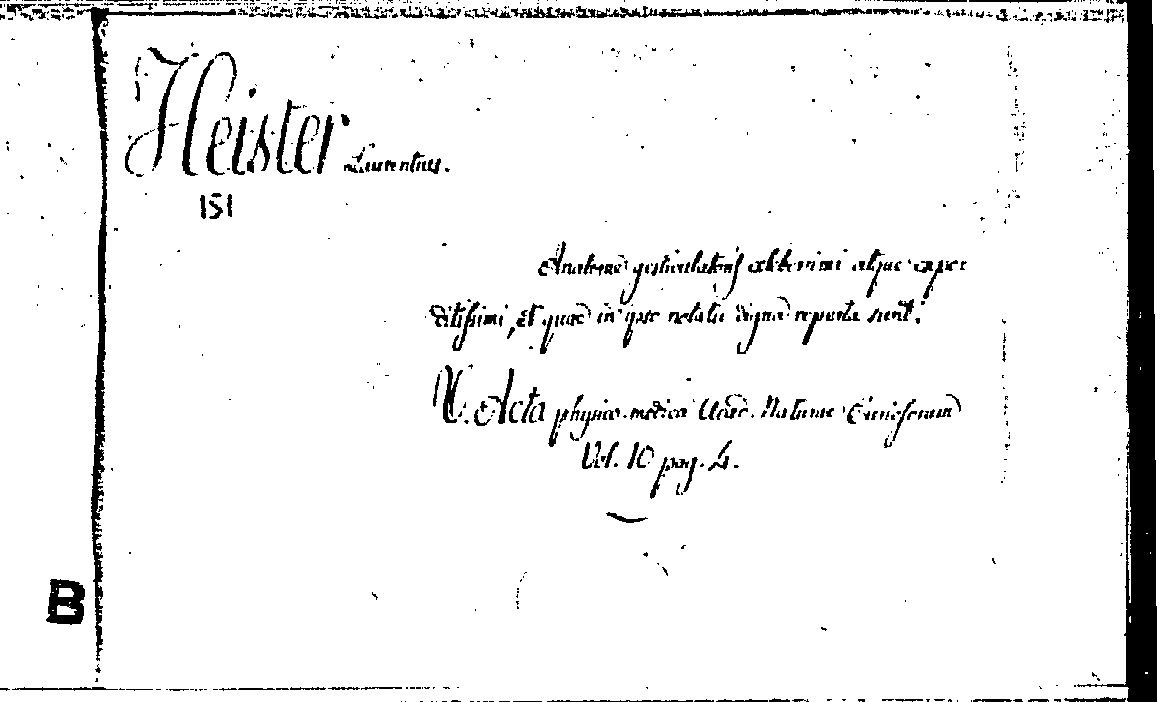 Heister Laurentius.
151
Anatome gesticulatoris celeberrimi atque expe
ditissimi, et quae in ipso notatu digna reperta sunt.
V. Acta physico-medica Acad. Naturae Curiosorum
Vol. 10 pag. 4.
B